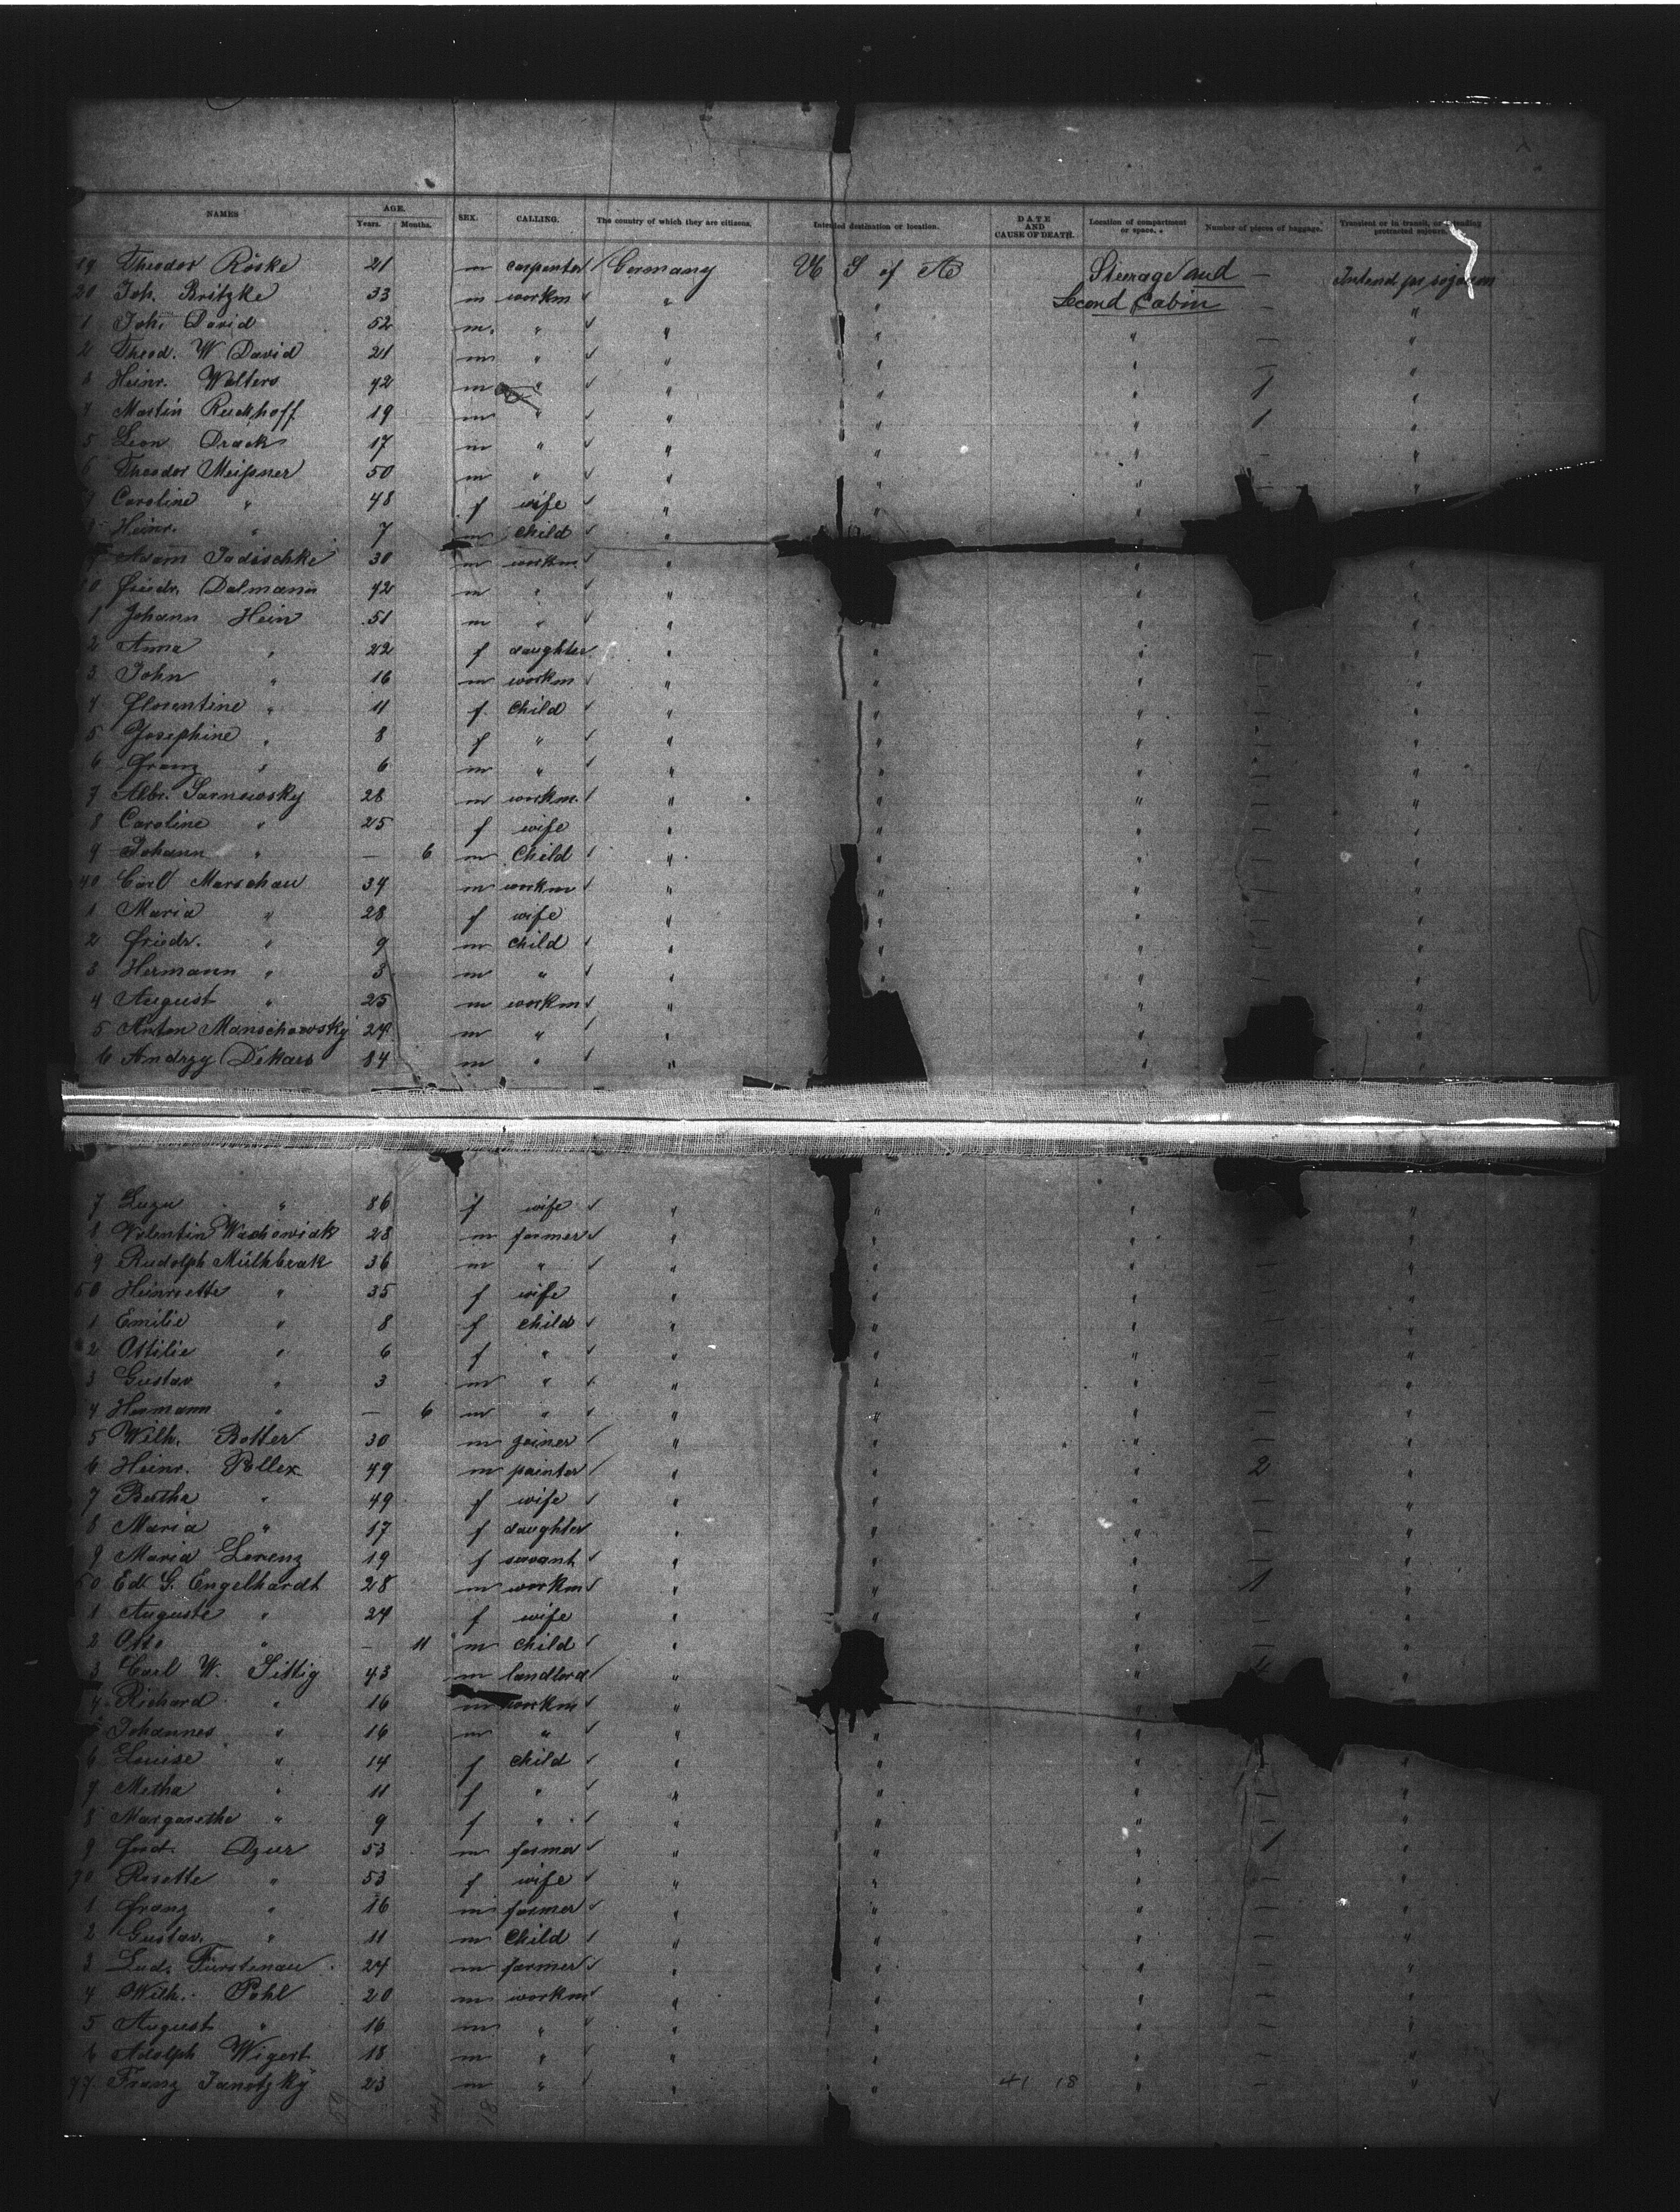 NAMES AGE. Years. Months. SEX. CALLING. The country of which they are citizens. Intended destination or location. DATE AND CAUSE OF DEATH. Location of compartment or space. Number of pieces of baggage. Transient or in transit, or intending protracted sojourn.
19 Theodor Röske 21 m carpenter Germany U S of A Steerage and — Intend pr sojourn
20 Joh. Britzke 33 m workm " " Second Cabin "
1 Joh. David 52 m. " " " " — "
2 Theod. W David 21 m " " " " — "
3 Heinr. Wolters 42 m " " " " 1 "
4 Martin Ruckhoff 19 m " " " " 1 "
5 Leon Drack 17 m " " " " — "
6 Theodor Meißner 50 m " " " " — "
7 Caroline " 48 f wife " " "
8 Heinr. " 7 m child "
9 Adam Jadischke 30 m workm "
30 Friedr. Dalmann 42 m " " " "
1 Johann Hein 51 m " " " "
2 Anna " 22 f daughter " " " — "
3 John " 16 m workm " " " — "
4 Florentine " 11 f. child " " " — "
5 Josephine " 8 f " " " " — "
6 Franz " 6 m " " " " — "
7 Albr. Sarnowsky 28 m workm. " " " — "
8 Caroline " 25 f wife " " " — "
9 Johann " — 6 m child " " " — "
40 Carl Marschau 34 m workm " " " — "
1 Maria " 28 f wife " " " — "
2 Friedr. " 9 m child " " " — "
3 Hermann " 3 m " " " " — "
4 August " 25 m workm " " "
5 Anton Manschowsky 24 m " " " "
6 Andrzy Dekars 84 m " " " "
7 Luzu " 86 f wife " " " "
8 Valentin Wachowiak 28 m farmer " " " "
9 Rudolph Mühlbrak 36 m " " " " — "
50 Henriette " 35 f wife " " " — "
1 Emilie " 8 f child " " " — "
2 Ottilie " 6 f " " " " — "
3 Gustav " 3 m " " " " — "
4 Hermann " — 6 m " " " " — "
5 Wilh. Botter 30 m joiner " " " — "
6 Heinr. Pollex 49 m painter " " " 2 "
7 Bertha " 49 f wife " " " — "
8 Maria " 17 f daughter " " " — "
9 Maria Lorenz 19 f servant " " " — "
60 Ed. G. Engelhardt 28 m workm " " " 1 "
1 Auguste " 24 f wife " " " — "
2 Otto " — 11 m child " " — "
3 Carl W. Sittig 43 m landlord " " "
4 Richard " 16 m workm " "
5 Johannes " 16 m " " " "
6 Louise " 14 f child " " " "
7 Metha " 11 f " " " " — "
8 Margarethe " 9 f " " " " — "
9 Ferd. Dzur 53 m farmer " " " 1 "
70 Rosette " 53 f wife " " " — "
1 Franz " 16 m farmer " " " — "
2 Gustav. " 11 m child " " " — "
3 Lud. Fürstenau 24 m farmer " " " — "
4 Wilh. Pohl 20 m workm " " " — "
5 August " 16 m " " " " — "
6 Adolph Wigert 18 m " " " " — "
77 Franz Janotzky 23 m " " " 41 18 " — "